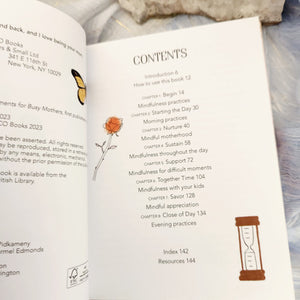 nd back, and I love being your
O Books
s & Small Ltd
341 E 116th St
New York, NY 10029
ments for Busy Mothers, first published
CO Books 2023
2023
been asserted. All rights reserved.
y be reproduced, stored in a retrieval
by any means, electronic, mechanical,
without the prior permission of the publ
book is available from the
ritish Library.
Pidkameny
rmel Edmonds
o
ington
FSC
CONTENTS
Introduction 6
How to use this book 12
CHAPTER 1 Begin 14
Mindfulness practices
CHAPTER 2 Starting the Day 30
Morning practices
CHAPTER 3 Nurture 40
Mindful motherhood
CHAPTER 4 Sustain 58
Mindfulness throughout the day
CHAPTER 5 Support 72
Mindfulness for difficult moments
CHAPTER 6 Together Time 104
Mindfulness with your kids
CHAPTER 7 Savor 128
Mindful appreciation
CHAPTER 8 Close of Day 134
Evening practices
Index 142
Resources 144